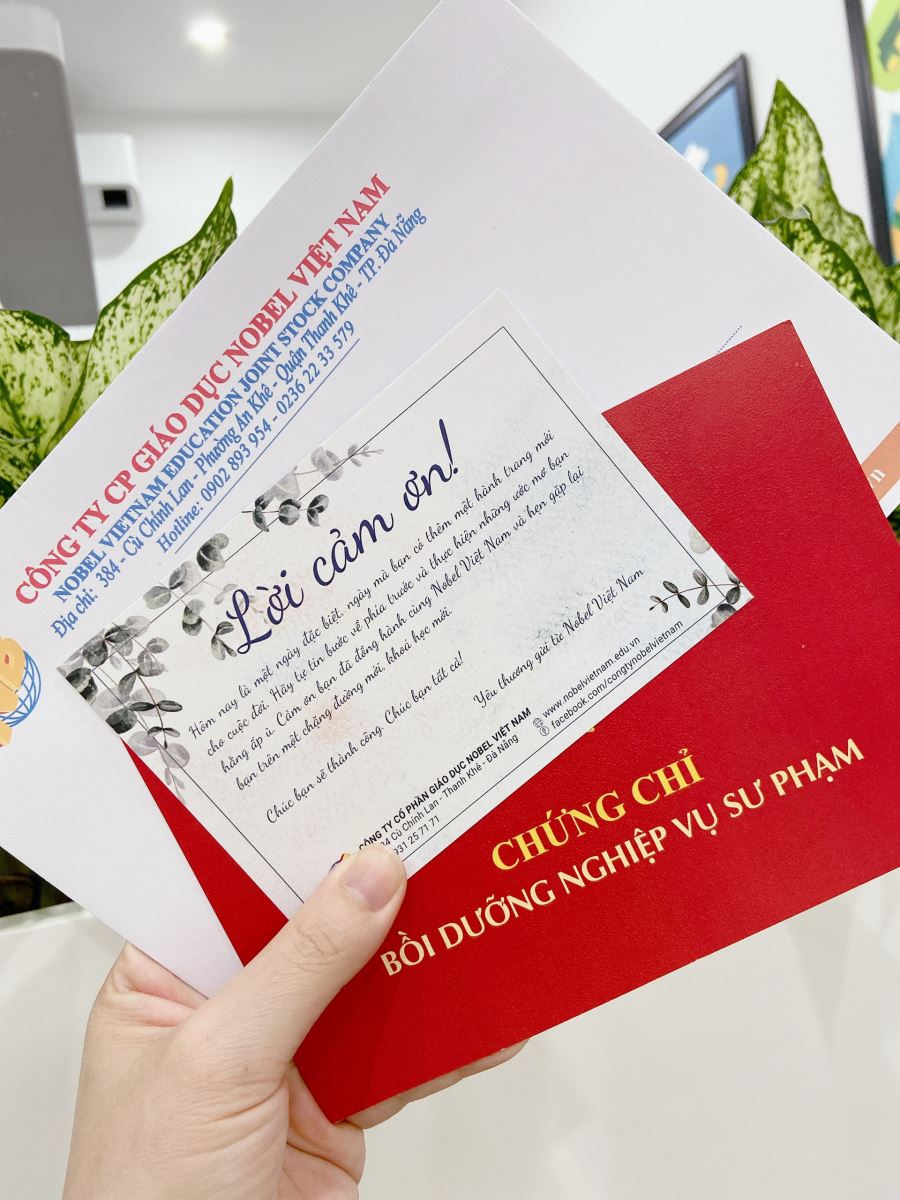 CÔNG TY CP GIÁO DỤC NOBEL VIỆT NAM
NOBEL VIETNAM EDUCATION JOINT STOCK COMPANY
Địa chỉ: 384 - Cù Chính Lan - Phường An Khê - Quận Thanh Khê - TP. Đà Nẵng
Hotline: 0902 893 954 - 0236 22 33 579
Lời cảm ơn!
Hôm nay là một ngày đặc biệt, ngày mà bạn có thêm một hành trang mới
cho cuộc đời. Hãy tự tin bước về phía trước và thực hiện những ước mơ bạn
hằng ấp ủ. Cảm ơn bạn đã đồng hành cùng Nobel Việt Nam và hẹn gặp lại
bạn trên một chặng đường mới, khoá học mới.
Chúc bạn sẽ thành công. Chúc bạn tất cả!
Yêu thương gửi từ Nobel Việt Nam
CÔNG TY CỔ PHẦN GIÁO DỤC NOBEL VIỆT NAM
84 Cù Chính Lan - Thanh Khê - Đà Nẵng
931 25 71 71
www.nobelvietnam.edu.vn
facebook.com/congtynobelvietnam
CHỨNG CHỈ
BỒI DƯỠNG NGHIỆP VỤ SƯ PHẠM